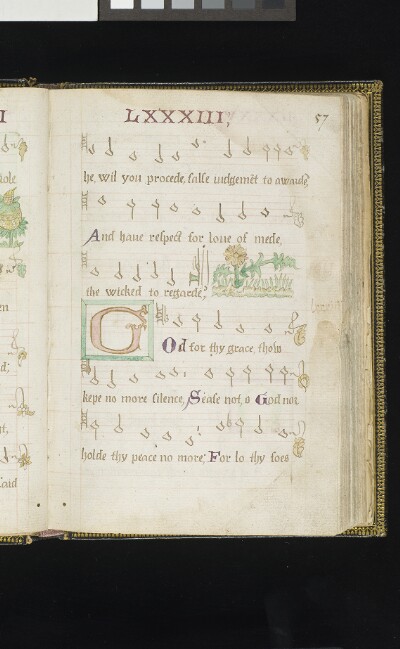 I
LXXXIII,
57
he, wil you procede, false iudgemēt to awarde,
And haue respect for loue of mede,
the wicked to regarde?
GOd for thy grace, thow
kepe no more silence, Sease not, o God nor
holde thy peace no more; For lo thy foes